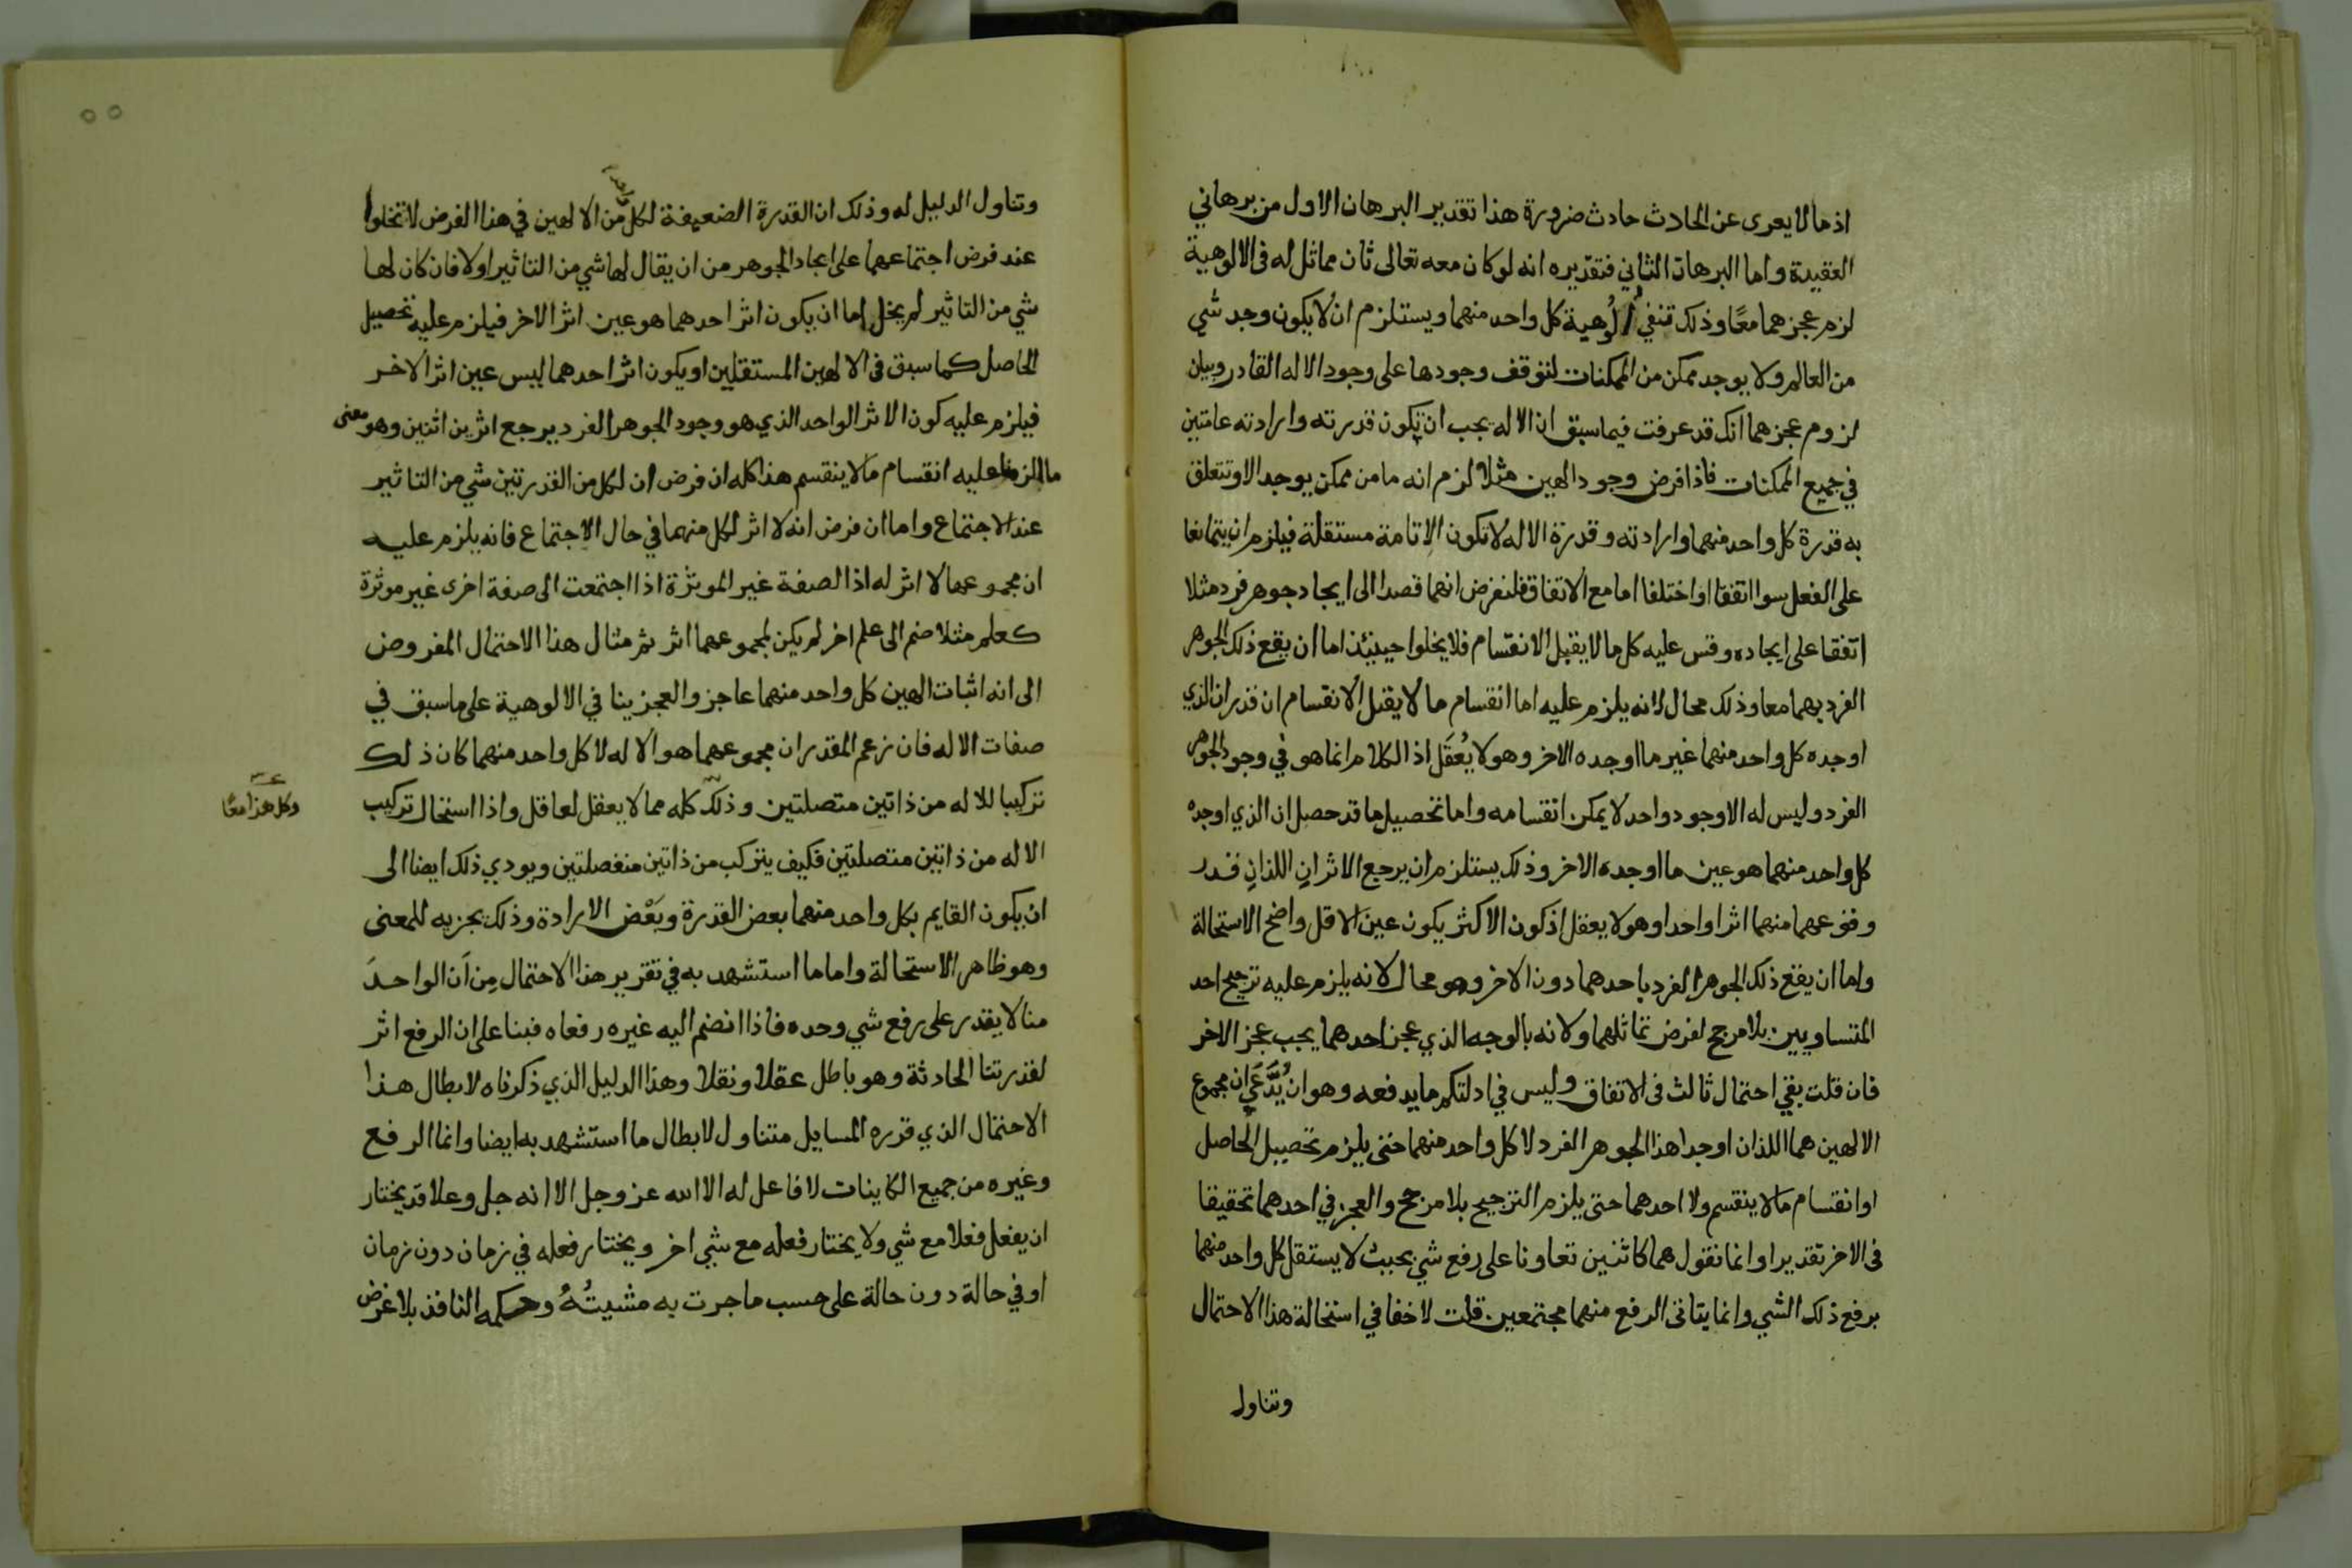 اذ ما لا يعرى عن الحادث حادث ضرورة هذا تقدير البرهان الاول من برهاني
العقيدة واما البرهان الثاني فتقديره انه لو كان معه تعالى ثان مماثل له في الالوهية
لزم عجزهما معًا وذلك تنفي ألُوهية كل واحد منهما ويستلزم ان لا يكون وجد شي
من العالم ولا يوجد ممكن من الممكنات لتوقف وجودها على وجود الاله القادر وبيان
لزوم عجزهما انك قد عرفت فيما سبق ان الاله يجب ان تكون قدرته وارادته عامتين
في جميع الممكنات فاذا فرض وجود الهين مثلا لزم انه ما من ممكن يوجد الا وتتعلق
به قدرة كل واحد منهما وارادته وقدرة الاله لا تكون الا تامة مستقلة فيلزم ان يتمانعا
على الفعل سوا اتفقا او اختلفا اما مع الاتفاق فلنفرض انهما قصدا الى ايجاد جوهر فرد مثلا
اتفقا على ايجاده وقس عليه كل ما لا يقبل الانقسام فلا يخلوا حينئذ اما ان يقع ذلك الجوهر
الفرد بهما معا وذلك محال لانه يلزم عليه اما انقسام ما لا يقبل الانقسام ان قدر ان الذي
اوجده كل واحد منهما غير ما اوجده الاخر وهو لا يُعقَل اذ الكلام انما هو في وجود الجوهر
الفرد وليس له الا وجود واحد لا يمكن انقسامه واما تحصيل ما قد حصل ان الذي اوجده
كل واحد منهما هو عين ما اوجده الاخر وذلك يستلزم ان يرجع الاثرانِ اللذانِ قدر
وقوعهما منهما اثرا واحدا وهو لا يعقل اذ كون الاكثر يكون عين الاقل واضح الاستحالة
واما ان يقع ذلك الجوهر الفرد باحدهما دون الاخر وهو محال لانه يلزم عليه ترجيح احد
المتساويين بلا مرجح لفرض تماثلهما ولانه بالوجه الذي عجز احدهما يجب عجز الاخر
فان قلت بقي احتمال ثالث في الاتفاق وليس في ادلتكم ما يدفعه وهو ان يُدَّعَي ان مجموع
الالهين هما اللذان اوجدا هذا الجوهر الفرد لا كل واحد منهما حتى يلزم تحصيل الحاصل
او انقسام ما لا ينقسم ولا احدهما حتى يلزم الترجيح بلا مرجح والعجز في احدهما تحقيقا
في الاخر تقديرا وانما نقول هما كاثنين تعاونا على رفع شي بحيث لا يستقل كل واحد منهما
برفع ذلك الشي وانما يتاتى الرفع منهما مجتمعين قلت لا خفا في استحالة هذا الاحتمال
وتناول
٥٥
وتناول الدليل له وذلك ان القدرة الضعيفة لكل من الالهين في هذا الفرض لا تخلوا
عند فرض اجتماعهما على ايجاد الجوهر من ان يقال لها شي من التاثير او لا فان كان لها
شي من التاثير لم يخل اما ان يكون اثر احدهما هو عين اثر الاخر فيلزم عليه تحصيل
الحاصل كما سبق في الالهين المستقلين او يكون اثر احدهما ليس عين اثر الاخر
فيلزم عليه كون الاثر الواحد الذي هو وجود الجوهر الفرد يرجع اثرين اثنين وهو معنى
ما الزمنا عليه انقسام ما لا ينقسم هذا كله ان فرض ان لكل من القدرتين شي من التاثير
عند الاجتماع واما ان فرض انه لا اثر لكل منهما في حال الاجتماع فانه يلزم عليه
ان مجموعهما لا اثر له اذ الصفة غير الموثرة اذا اجتمعت الى صفة اخرى غير موثرة
كعلم مثلا ضم الى علم اخر لم يكن لمجموعهما اثر ثم مثال هذا الاحتمال المفروض
الى انه اثبات الهين كل واحد منهما عاجز والعجز ينافي الالوهية على ما سبق في
صفات الاله فان زعم المقدر ان مجموعهما هو الاله لا كل واحد منهما كان ذلك
تركيبا للاله من ذاتين متصلتين وذلك كله مما لا يعقل لعاقل واذا استحال تركيب
وكل هذا معًا
الاله من ذاتين متصلتين فكيف يتركب من ذاتين منفصلتين ويودي ذلك ايضا الى
ان يكون القايم بكل واحد منهما بعض القدرة وبَعْض الارادة وذلك تجزيه للمعنى
وهو ظاهر الاستحالة واما ما استشهد به في تقرير هذا الاحتمال مِن اَن الواحدَ
منا لا يقدر على رفع شي وحده فاذا انضم اليه غيره رفعاه فبنا على ان الرفع اثر
لقدرتنا الحادثة وهو باطل عقلا ونقلا وهذا الدليل الذي ذكرناه لابطال هذا
الاحتمال الذي قرره السايل متناول لابطال ما استشهد به ايضا وانما الرفع
وغيره من جميع الكاينات لا فاعل له الا الله عز وجل الا انه جل وعلا قد يختار
ان يفعل فعلا مع شي ولا يختار فعله مع شي اخر ويختار فعله في زمان دون زمان
او في حالة دون حالة على حسب ما جرت به مشيتُهُ وحكمه النافذ بلا غرض